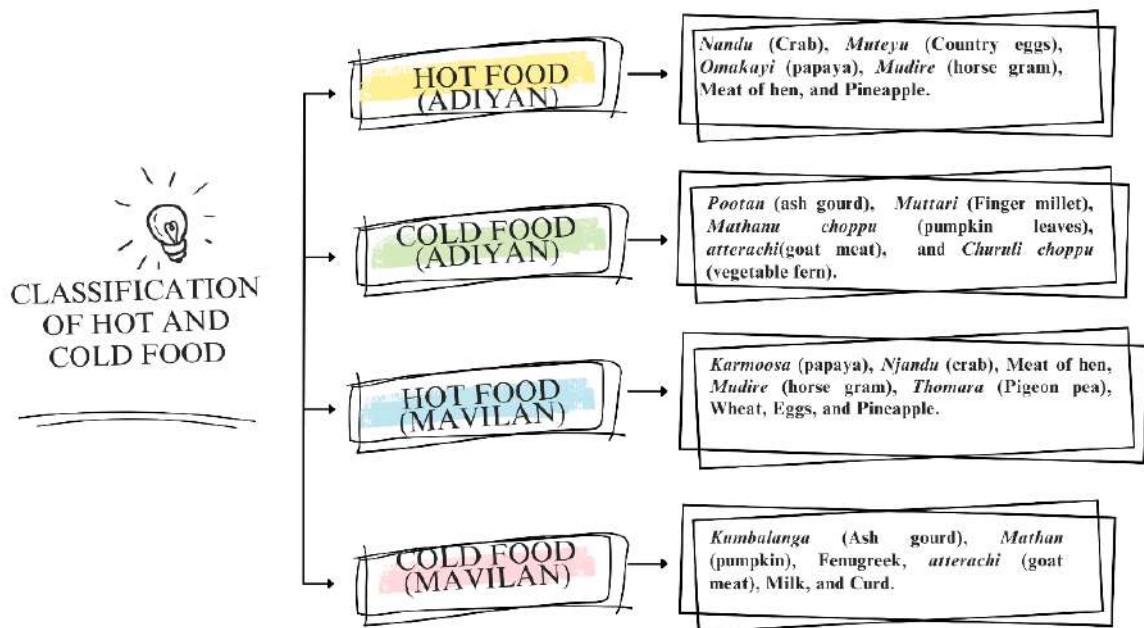 CLASSIFICATION
OF HOT AND
COLD FOOD
HOT FOOD
(ADIYAN)
Nandu (Crab), Muteyu (Country eggs),
Omakayi (papaya), Mudire (horse gram),
Meat of hen, and Pineapple.
COLD FOOD
(ADIYAN)
Pootan (ash gourd), Muttari (Finger millet),
Mathanu choppu (pumpkin leaves),
atterachi(goat meat), and Churuli choppu
(vegetable fern).
HOT FOOD
(MAVILAN)
Karmoosa (papaya), Njandu (crab), Meat of hen,
Mudire (horse gram), Thomara (Pigeon pea),
Wheat, Eggs, and Pineapple.
COLD FOOD
(MAVILAN)
Kumbalanga (Ash gourd), Mathan
(pumpkin), Fenugreek, atterachi (goat
meat), Milk, and Curd.